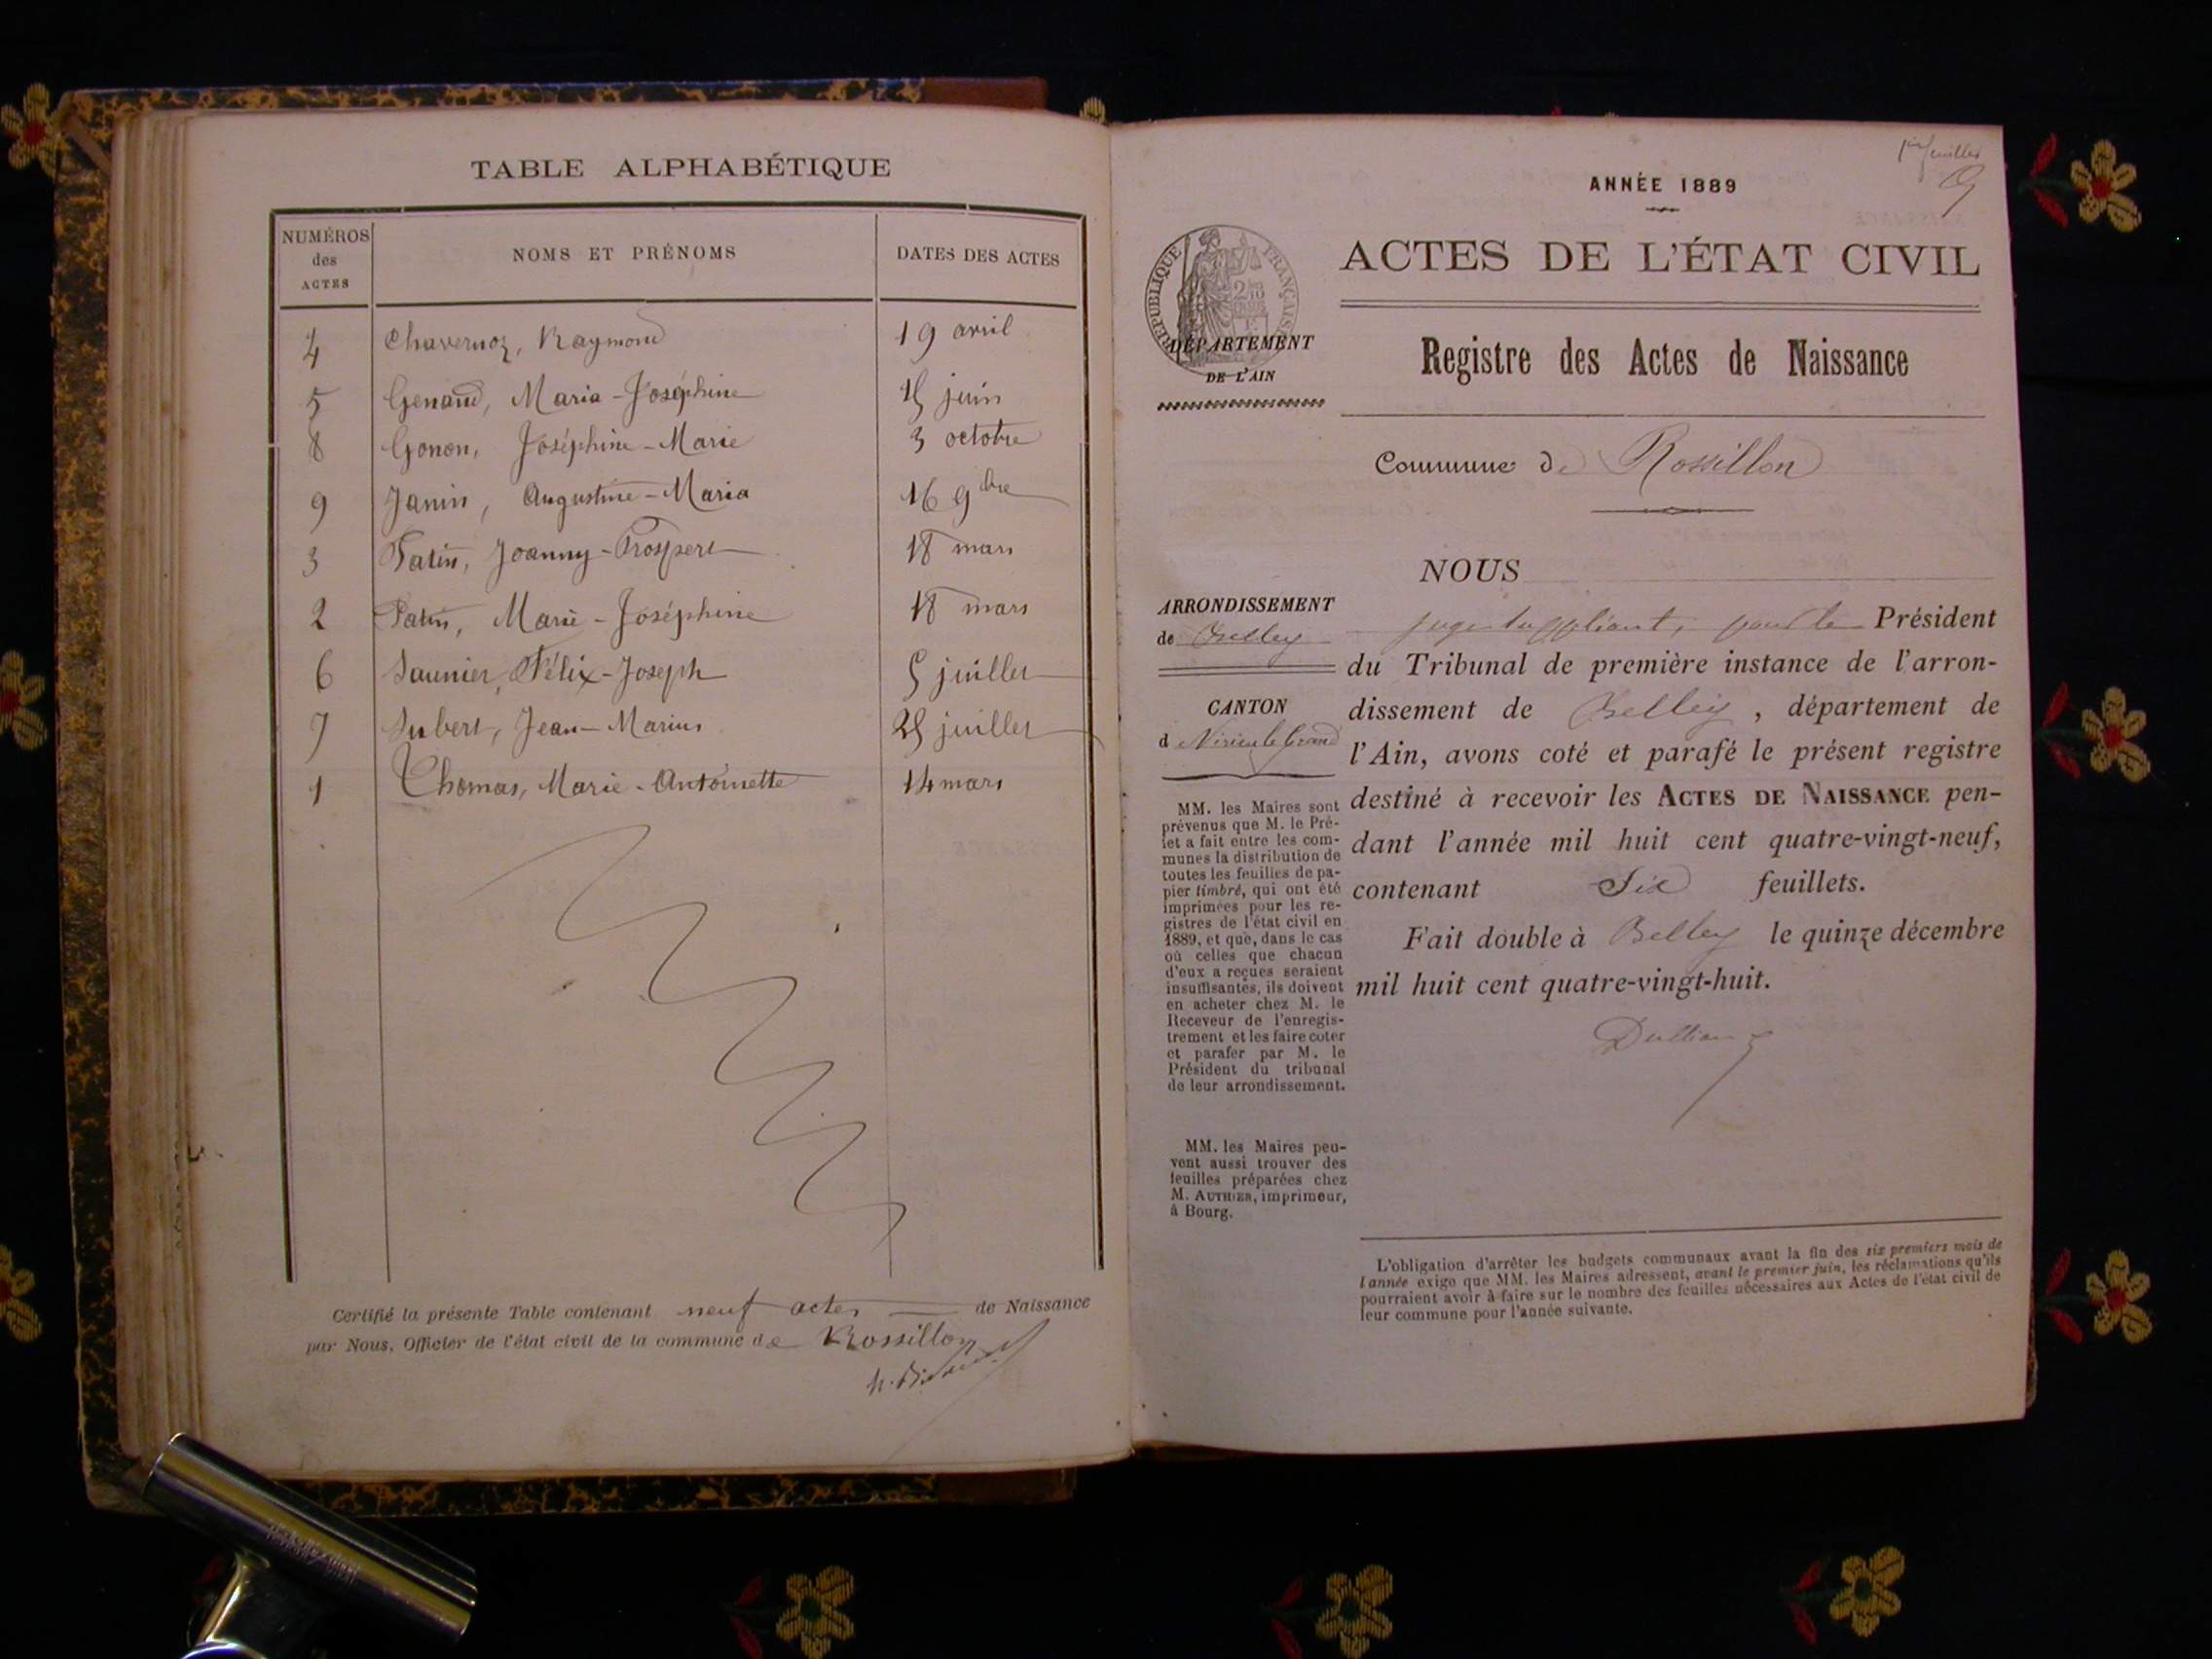 TABLE ALPHABÉTIQUE
NUMÉROS des ACTES NOMS ET PRÉNOMS DATES DES ACTES
4 Chavernoz, Raymond 19 avril
5 Genaud, Maria-Joséphine 15 juin
8 Gonon, Joséphine-Marie 3 octobre
9 Janin, Augustine-Maria 16 9bre
3 Patin, Joanny-Prosper 18 mars
2 Patin, Marie-Joséphine 18 mars
6 Saunier, Félix-Joseph 5 juillet
7 Subert, Jean-Marius 25 juillet
1 Thomas, Marie-Antoinette 14 mars
Certifié la présente Table contenant neuf actes de Naissance
par Nous, Officier de l'état civil de la commune de Rossillon
1er feuillet
ANNÉE 1889
RÉPUBLIQUE FRANÇAISE
DÉPARTEMENT
DE L'AIN
ACTES DE L'ÉTAT CIVIL
Registre des Actes de Naissance
Commune de Rossillon
ARRONDISSEMENT
de Belley
CANTON
d Virieu le Grand
MM. les Maires sont
prévenus que M. le Pré-
fet a fait entre les com-
munes la distribution de
toutes les feuilles de pa-
pier timbré, qui ont été
imprimées pour les re-
gistres de l'état civil en
1889, et que, dans le cas
où celles que chacun
d'eux a reçues seraient
insuffisantes, ils doivent
en acheter chez M. le
Receveur de l'enregis-
trement et les faire coter
et parafer par M. le
Président du tribunal
de leur arrondissement.
MM. les Maires peu-
vent aussi trouver des
feuilles préparées chez
M. AUTHIER, imprimeur,
à Bourg.
NOUS
juge suppléant, pour le Président
du Tribunal de première instance de l'arron-
dissement de Belley, département de
l'Ain, avons coté et parafé le présent registre
destiné à recevoir les ACTES DE NAISSANCE pen-
dant l'année mil huit cent quatre-vingt-neuf,
contenant Six feuillets.
Fait double à Belley le quinze décembre
mil huit cent quatre-vingt-huit.
L'obligation d'arrêter les budgets communaux avant la fin des six premiers mois de
l'année exige que MM. les Maires adressent, avant le premier juin, les réclamations qu'ils
pourraient avoir à faire sur le nombre des feuilles nécessaires aux Actes de l'état civil de
leur commune pour l'année suivante.